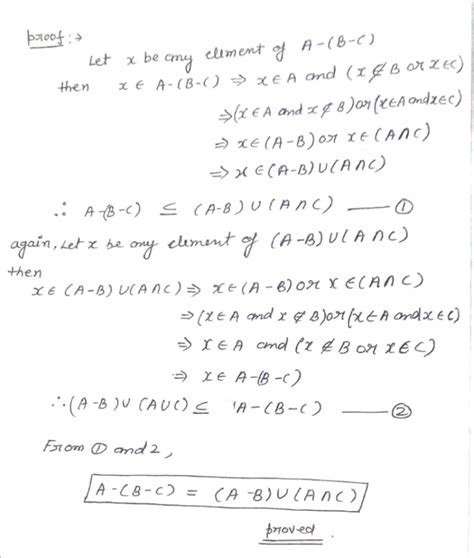 proof :→
Let x be any element of A-(B-C)
then x ∈ A-(B-C) ⇒ x∈A and (x∉B or x∈C)
⇒(x∈A and x∉B) or (x∈A and x∈C)
⇒ x∈(A-B) or x∈(A∩C)
⇒ x∈(A-B)∪(A∩C)
∴ A-(B-C) ≤ (A-B)∪(A∩C) —— ①
again, Let x be any element of (A-B)∪(A∩C)
then
x∈(A-B)∪(A∩C) ⇒ x∈(A-B) or x∈(A∩C)
⇒(x∈A and x∉B) or (x∈A and x∈C)
⇒ x∈A and (x∉B or x∈C)
⇒ x∈A-(B-C)
∴(A-B)∪(A∪C) ≤ A-(B-C) —— ②
From ① and 2,
A-(B-C) = (A-B)∪(A∩C)
proved.